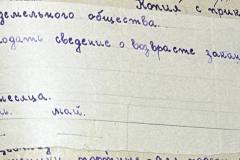 Копия с прик
земельного общества.
подать сведение о возврасте закан
месяца.
май.